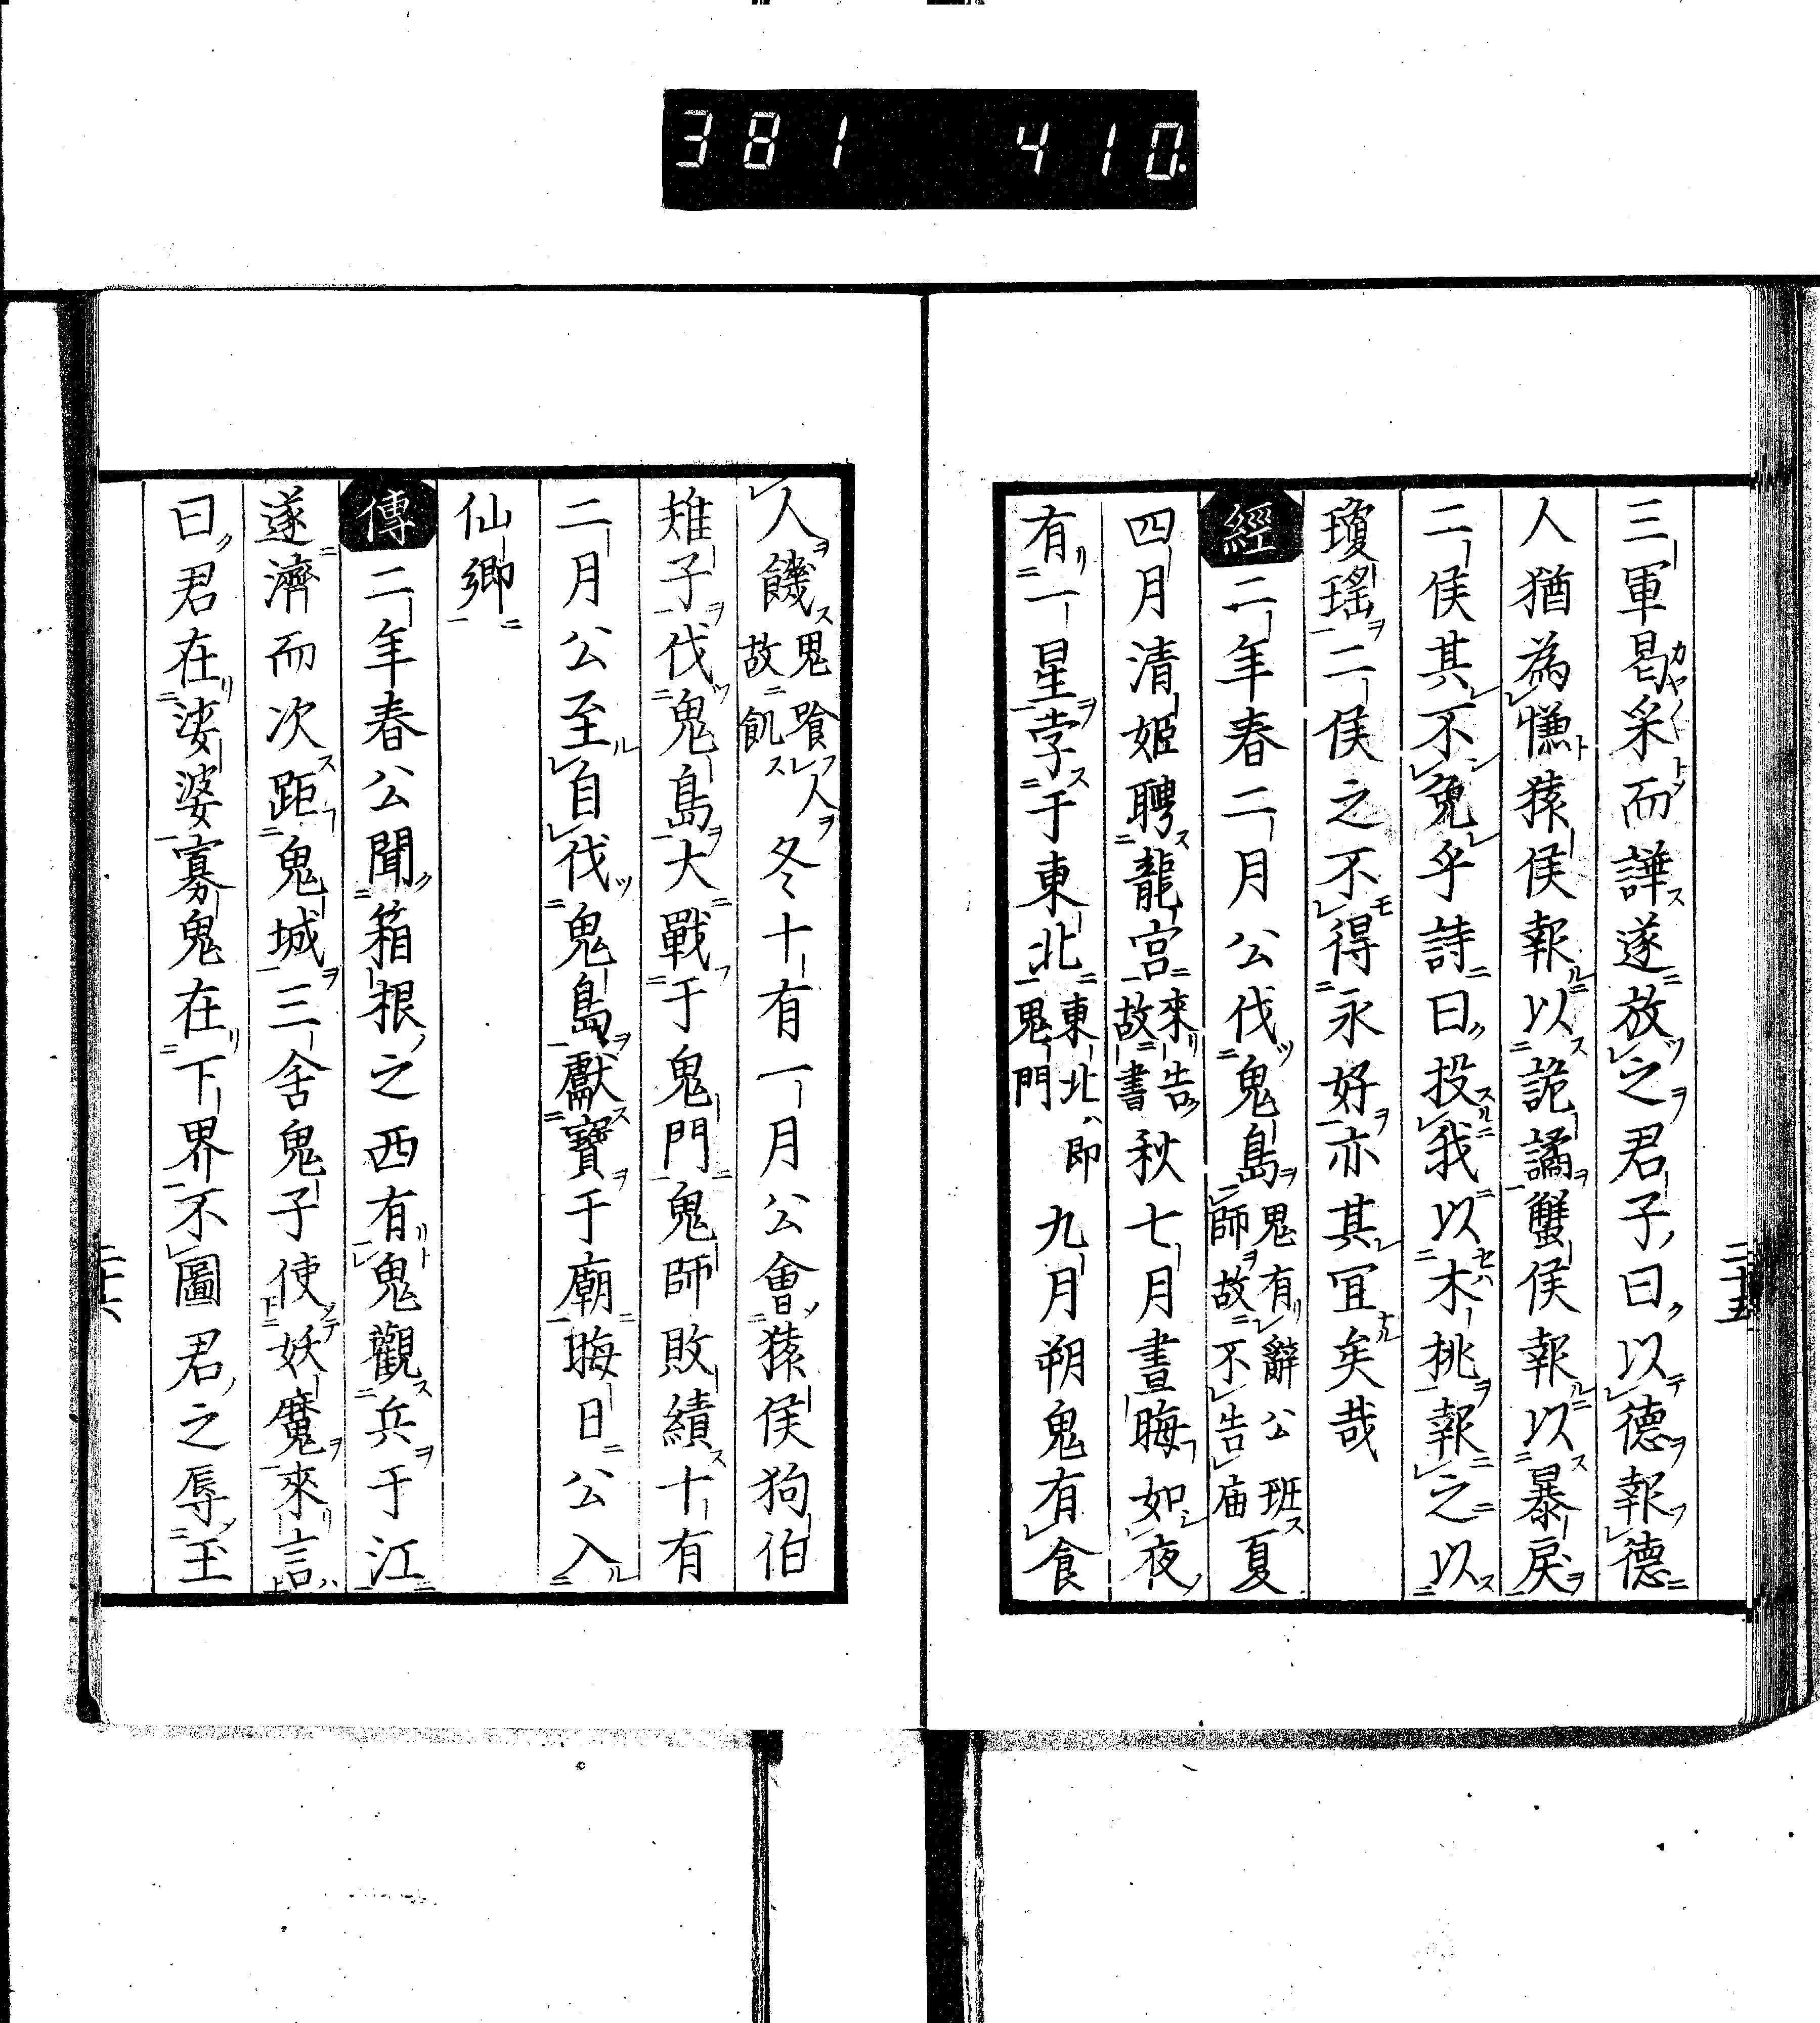 381 410
二十五
三軍曷采而譁遂放之君子曰以德報德
人猶為慊猿侯報以詭譎蟹侯報以暴戾
二侯其不免乎詩曰投我以木桃報之以
瓊瑤二侯之不得永好亦其宜矣哉
經二年春二月公伐鬼島鬼有辭公班師故不告庙夏
四月清姬聘龍宮來告故書秋七月晝晦如夜
有一星孛于東北東北即鬼門九月朔鬼有食
人饑鬼喰人故飢冬十有一月公會猿侯狗伯
雉子伐鬼島大戰于鬼門鬼師敗績十有
二月公至自伐鬼島獻寶于廟晦日公入
仙鄉
傳二年春公聞箱根之西有鬼觀兵于江
遂濟而次距鬼城三舍鬼子使妖魔來言
曰君在娑婆寡鬼在下界不圖君之辱玉
二十六